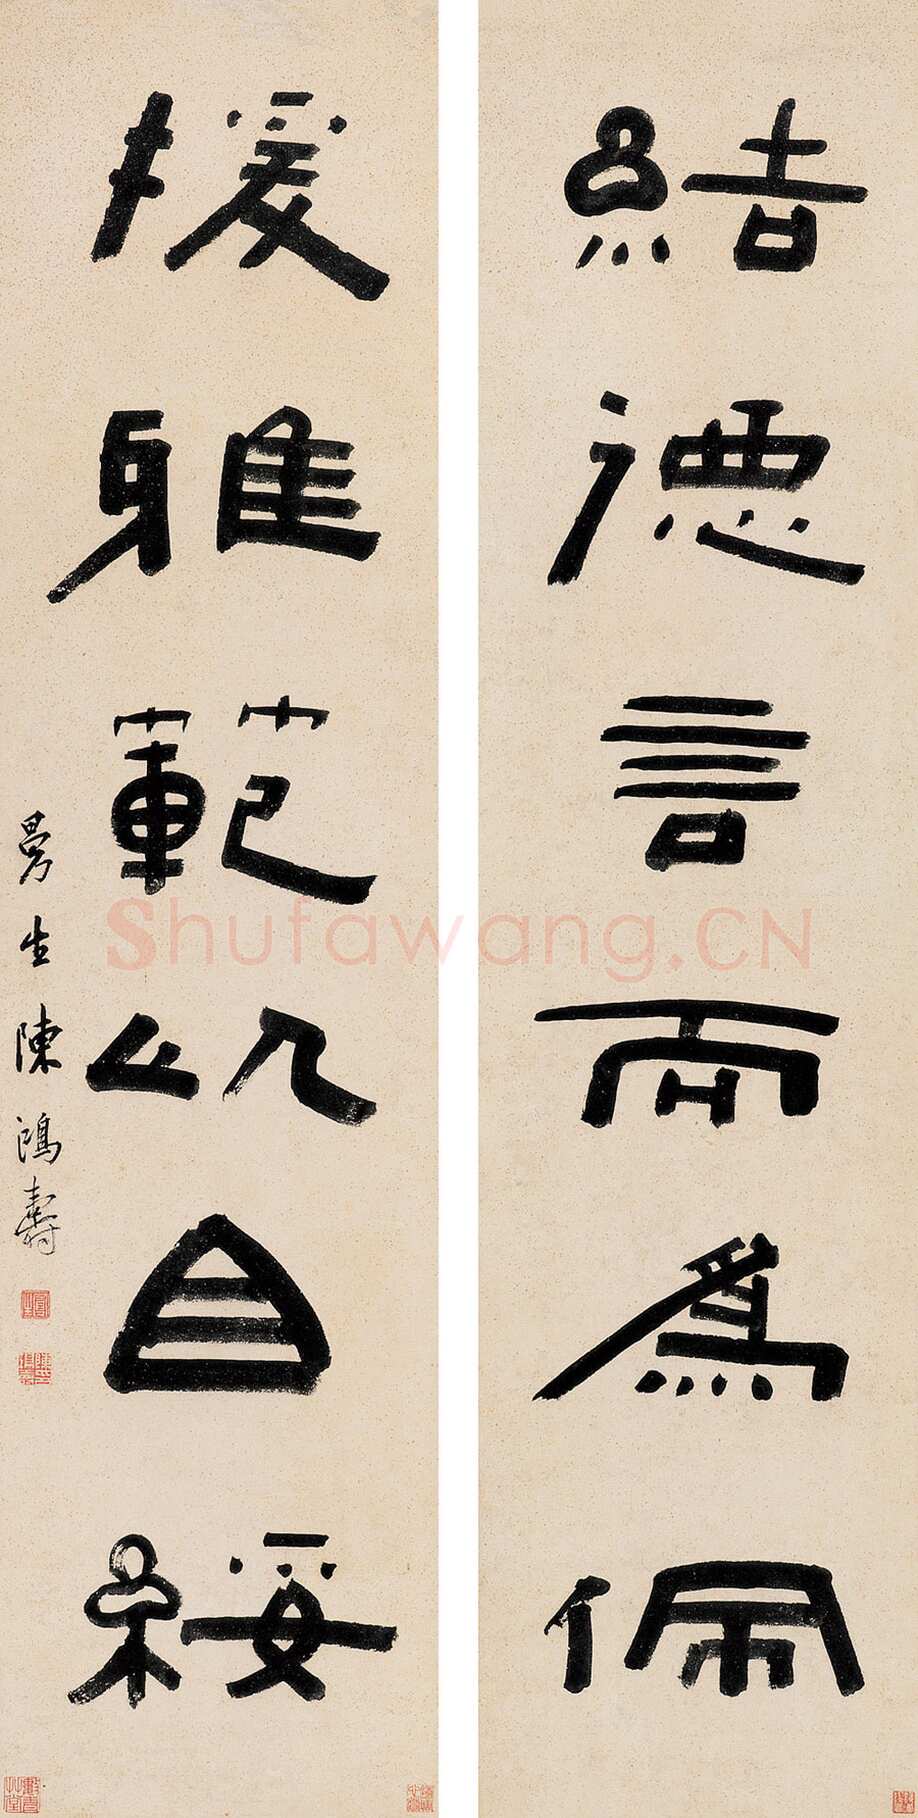 結德言而爲佩
援雅範以自綏
曼生陳鴻壽
Shufawang.CN